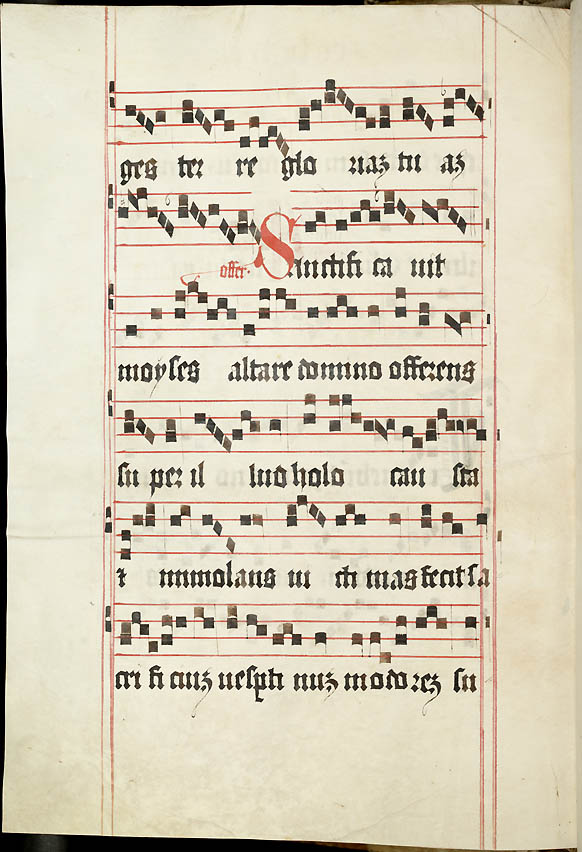 ges ter re glo riaz tu az
offer. Sanctifi ca uit
moyses altare domino offerens
su per il lud holo cau sta
⁊ immolans ui cti mas fecit sa
cri fi ciuz uesperti nuz in odo rez su